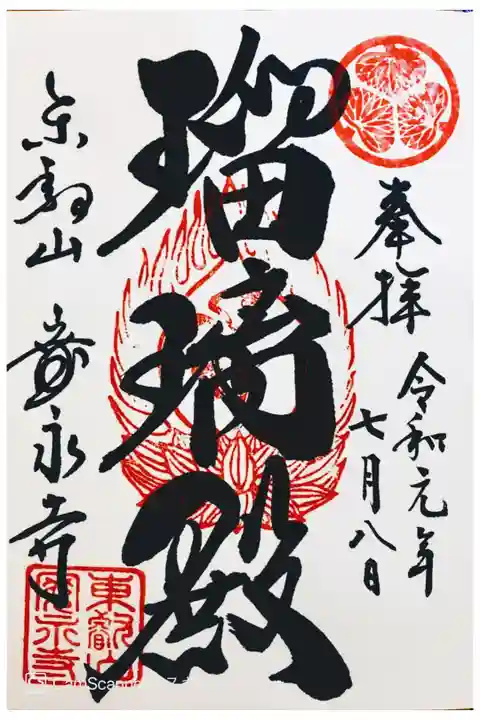 奉拝
令和元年
七月八日
瑠璃殿
東叡山 寛永寺
東叡山
寛永寺
CamScanner